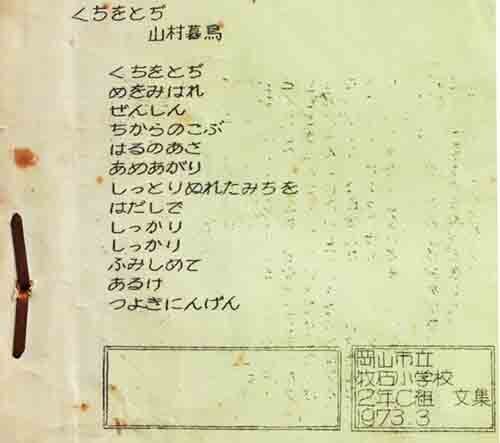 くちをとぢ
山村暮鳥
くちをとぢ
めをみはれ
ぜんしん
ちからのこぶ
はるのあさ
あめあがり
しっとりぬれたみちを
はだしで
しっかり
しっかり
ふみしめて
あるけ
つよきにんげん
岡山市立
牧石小学校
2年C組 文集
1973.3